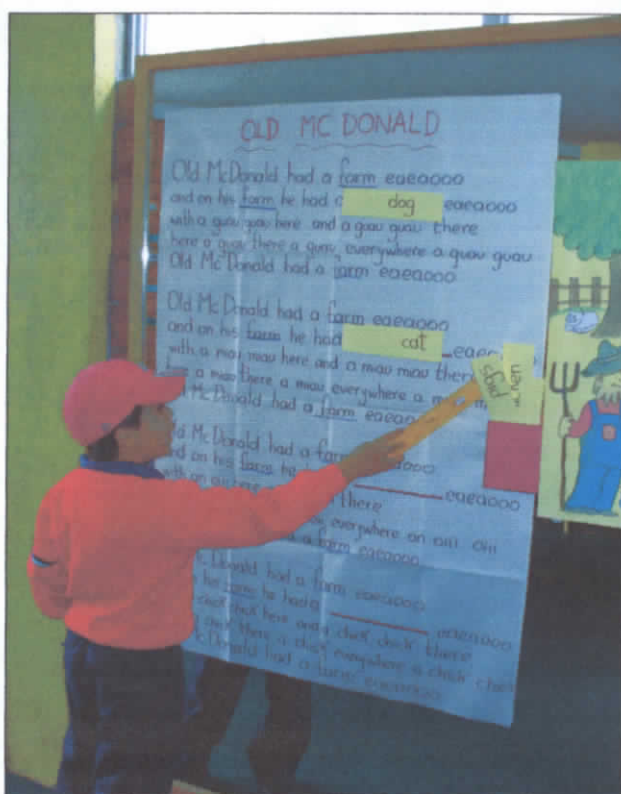 OLD MC DONALD
Old McDonald had a farm eaeaooo
and on his farm he had a dog eaeaooo
with a guau guau here and a guau guau there
here a guau there a guau, everywhere a guau guau
Old Mc Donald had a farm eaeaooo
Old Mc Donald had a farm eaeaooo
and on his farm he had cat
with a miau miau here and a miau miau there
a miau there a miau everywhere a
Mc Donald had a farm
pigs
Mc Donald had a farm
and on his farm he eaeaooo
there
everywhere an oiii oiii
a farm eaeaooo
Donald had a farm eaeaooo
his farm he had a eaeaooo
chick chick here and a chick chick there
chick there a chick everywhere a chick chick
McDonald had a farm eaeaooo